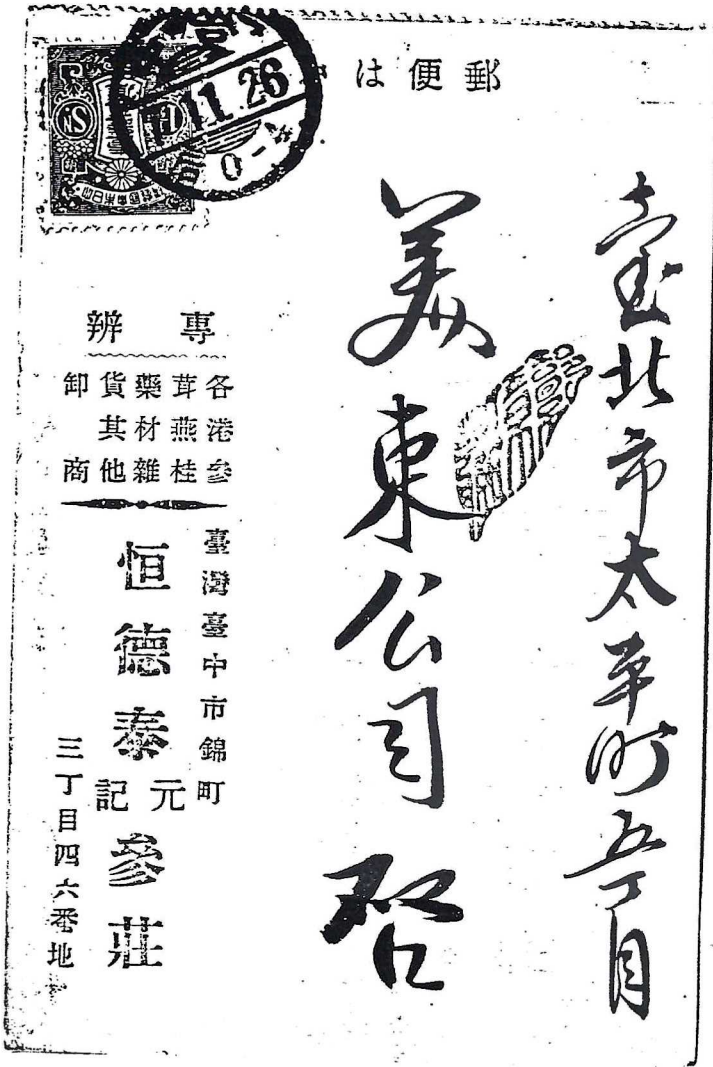 郵便は
臺北市太平町五丁目
美東公司 啓
11.26
0-4
專辦
各港參
茸燕桂
藥材雜
貨其他
卸商
臺灣臺中市錦町
三丁目四六番地
恒德泰
元記
參莊